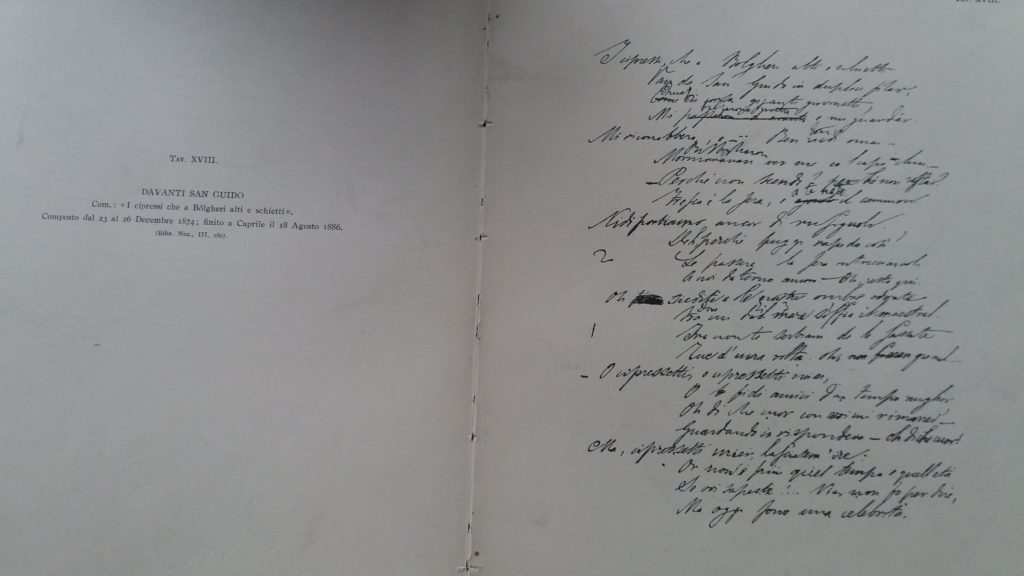 TAV. XVIII.
DAVANTI SAN GUIDO
Com.: «I cipressi che a Bólgheri alti e schietti».
Composto dal 23 al 26 Decembre 1874; finito a Caprile il 18 Agosto 1886.
(Ediz. Naz., III, 180).
I cipressi, che a Bólgheri alti e schietti
Van da San Guido in duplice filar,
Quasi
giganti giovinetti
Mi e mi guardar
Mi riconobbero, e — Ben torni omai —
Bisbigliaron
Mormoravan ver me co 'l capo chino —
— Perché non scendi? perché non ristai?
Fresca è la sera, e a te noto il cammino
Nidi portiamo ancor di rusignoli.
Deh perché fuggi rapido così?
2
Le passere la sera intrecciando
A noi d'intorno ancora — Oh resta qui.
Oh siediti a le nostre ombre odorate
Ove dal mare soffia il maestral
1
Ira non ti serbiam de le sassate
Tue d'una volta: oh, non
— O cipressetti, o cipressetti miei,
O fidi amici d'un tempo miglior
Oh di che cuor con voi mi rimarrei —
Guardando io rispondeva — oh di che cuor!
Ma, cipressetti miei, lasciatem' ire:
Or non è più quel tempo e quell'età
Se voi sapeste!... Via, non fo per dire,
Ma oggi sono una celebrità.